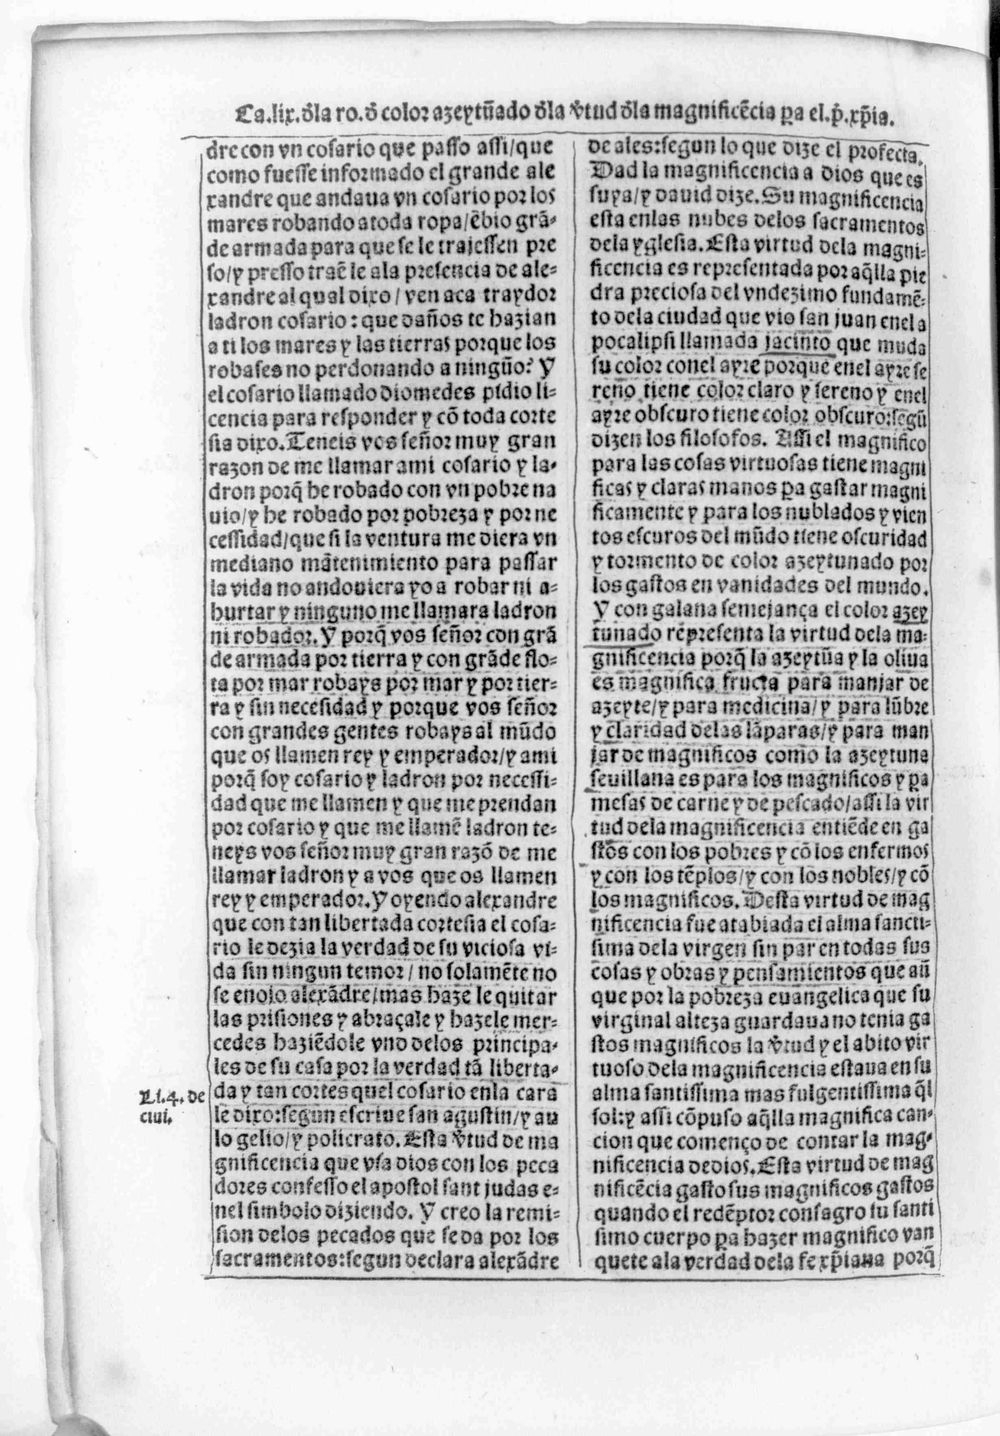 Ca.lix.d̄la ro.d̄ color azeytūado d̄la v̄tud d̄la magnificēcia p̱a el.p̄.xp̄ia.
dre con vn cosario que passo assi/que
como fuesse informado el grande ale
xandre que andaua vn cosario por los
mares robando a toda ropa/ēbio grā-
de armada para que se le trajessen pre
so/y presso traēle ala presencia de ale-
xandre al qual dixo/ven aca traydor
ladron cosario: que daños te hazian
a ti los mares y las tierras porque los
robases no perdonando a ningūo? Y
el cosario llamado diomedes pidio li-
cencia para responder y cō toda corte
sia dixo. Teneis vos señor muy gran
razon de me llamar ami cosario y la-
dron porq̄ he robado con vn pobre na
uio/y he robado por pobreza y por ne
cessidad/que si la ventura me diera vn
mediano mātenimiento para passar
la vida no andouiera yo a robar ni a-
hurtar y ninguno me llamara ladron
ni robador. Y porq̄ vos señor con grā
de armada por tierra y con grāde flo-
ta por mar robays por mar y por tier-
ra y sin necesidad y porque vos señor
con grandes gentes robays al mūdo
que os llamen rey y emperador/y ami
porq̄ soy cosario y ladron por necessi-
dad que me llamen y que me prendan
por cosario y que me llamē ladron te-
neys vos señor muy gran razō de me
llamar ladron y a vos que os llamen
rey y emperador. Y oyendo alexandre
que con tan libertada cortesia el cosa-
rio le dezia la verdad de su viciosa vi-
da sin ningun temor/no solamēte no
se enojo alexādre/mas haze le quitar
las prisiones y abraçale y hazele mer-
cedes haziēdole vno delos principa-
les de su casa por la verdad tā liberta-
Li.4. de
ciui.
da y tan cortes quel cosario enla cara
le dixo: segun escriue san agustin/y au
lo gelio/y policrato. Esta v̄tud de ma
gnificencia que vsa dios con los peca
dores confesso el apostol sant judas e-
nel simbolo diziendo. Y creo la remi-
sion delos pecados que se da por los
sacramentos: segun declara alexādre
de ales: segun lo que dize el profecta.
Dad la magnificencia a dios que es
suya/y dauid dize. Su magnificencia
esta enlas nubes delos sacramentos
dela yglesia. Esta virtud dela magni-
ficencia es representada por aq̄lla pie
dra preciosa del vndezimo fundamē-
to dela ciudad que vio san juan enel a
pocalipsi llamada jacinto que muda
su color conel ayre porque enel ayre se
reno tiene color claro y sereno y enel
ayre obscuro tiene color obscuro: segū
dizen los filosofos. Assi el magnifico
para las cosas virtuosas tiene magni
ficas y claras manos p̱a gastar magni
ficamente y para los nublados y vien
tos escuros del mūdo tiene oscuridad
y tormento de color azeytunado por
los gastos en vanidades del mundo.
Y con galana semejança el color azey
tunado representa la virtud dela ma-
gnificencia porq̄ la azeytūa y la oliua
es magnifica fructa para manjar de
azeyte/y para medicina/y para lūbre
y claridad delas lāparas/y para man
jar de magnificos como la azeytuna
seuillana es para los magnificos y p̱a
mesas de carne y de pescado/assi la vir
tud dela magnificencia entiēde en ga
stos con los pobres y cō los enfermos
y con los tēplos/y con los nobles/y cō
los magnificos. Desta virtud de mag
nificencia fue atabiada el alma sancti-
sima dela virgen sin par en todas sus
cosas y obras y pensamientos que aū
que por la pobreza euangelica que su
virginal alteza guardaua no tenia ga
stos magnificos la v̄tud y el abito vir
tuoso dela magnificencia estaua en su
alma santissima mas fulgentissima q̄l
sol: y assi cōpuso aq̄lla magnifica can-
cion que començo de contar la mag-
nificencia de dios. Esta virtud de mag
nificēcia gasto sus magnificos gastos
quando el redēptor consagro su santi
simo cuerpo p̱a hazer magnifico van
quete ala verdad dela fe xp̄iana porq̄